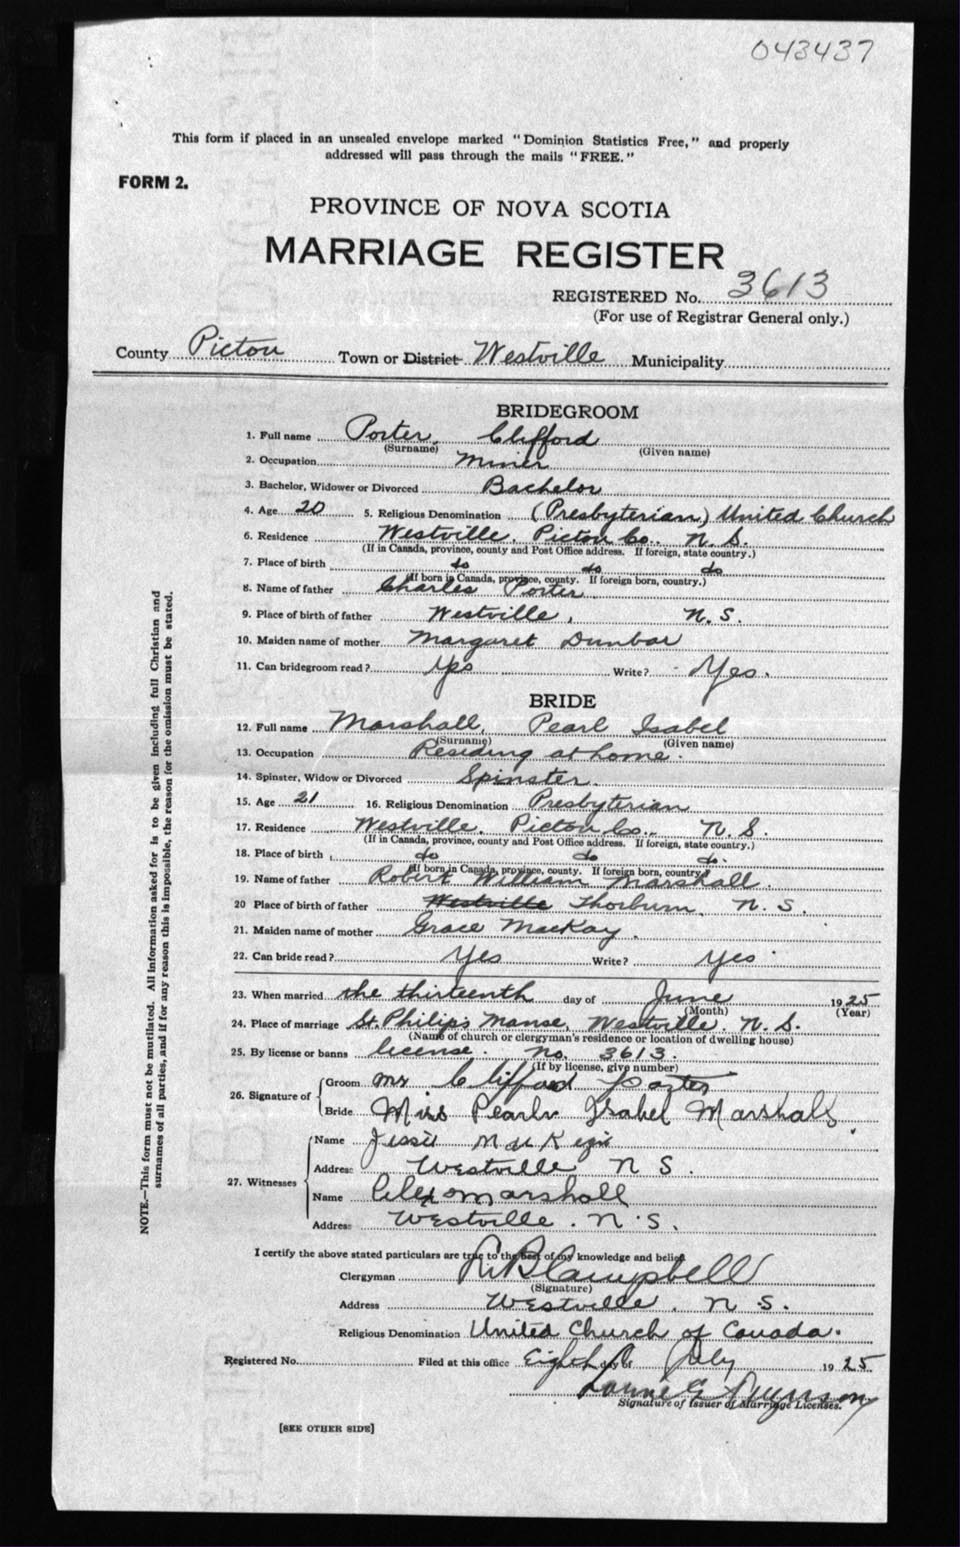 043437
This form if placed in an unsealed envelope marked "Dominion Statistics Free," and properly
addressed will pass through the mails "FREE."
FORM 2.
PROVINCE OF NOVA SCOTIA
MARRIAGE REGISTER
REGISTERED No. 3613
(For use of Registrar General only.)
County Pictou Town or District Westville Municipality
BRIDEGROOM
1. Full name Porter, Clifford
(Surname) (Given name)
2. Occupation Miner
3. Bachelor, Widower or Divorced Bachelor
4. Age 20 5. Religious Denomination (Presbyterian) United Church
6. Residence Westville, Pictou Co., N. S.
(If in Canada, province, county and Post Office address. If foreign, state country.)
7. Place of birth do do do
(If born in Canada, province, county. If foreign born, country.)
8. Name of father Charles Porter
9. Place of birth of father Westville, N. S.
10. Maiden name of mother Margaret Dunbar
11. Can bridegroom read? Yes Write? Yes.
BRIDE
12. Full name Marshall, Pearl Isabel
(Surname) (Given name)
13. Occupation Residing at home.
14. Spinster, Widow or Divorced Spinster
15. Age 21 16. Religious Denomination Presbyterian
17. Residence Westville, Pictou Co., N. S.
(If in Canada, province, county and Post Office address. If foreign, state country.)
18. Place of birth do do do.
(If born in Canada, province, county. If foreign born, country.)
19. Name of father Robert William Marshall.
20 Place of birth of father Westville Thorburn, N. S.
21. Maiden name of mother Grace MacKay.
22. Can bride read? Yes Write? Yes
23. When married the thirteenth day of June 1925
(Month) (Year)
24. Place of marriage St. Philip's Manse, Westville, N. S.
(Name of church or clergyman's residence or location of dwelling house)
25. By license or banns license. No. 3613.
(If by license, give number)
26. Signature of Groom Mr Clifford Porter
Bride Miss Pearl Isabel Marshall.
27. Witnesses Name Jessie
Address Westville N S.
Name Marshall
Address Westville. N. S.
I certify the above stated particulars are true to the best of my knowledge and belief.
Clergyman Campbell
(Signature)
Address Westville, N. S.
Religious Denomination United Church of Canada.
Registered No. Filed at this office Eighth day July 1925
Munson
Signature of Issuer of Marriage Licenses.
[SEE OTHER SIDE]
NOTE.—This form must not be mutilated. All information asked for is to be given including full Christian and
surnames of all parties, and if for any reason this is impossible, the reason for the omission must be stated.